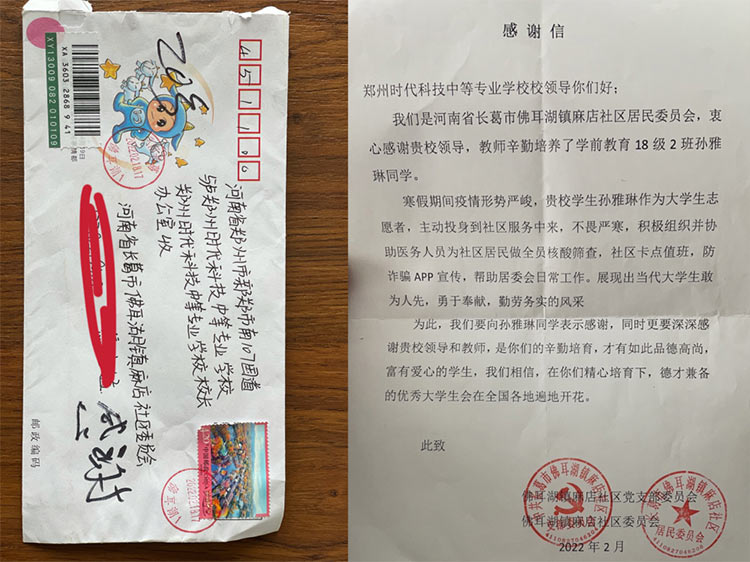 XA 3603 2868 9 41
XY13009 082 010109
451100
河南省郑州市新郑市南107国道
与郑州时代科技中等专业学校
郑州时代科技中等专业学校校长
办公室 收
河南省长葛市佛耳湖镇麻店社区委员会
感谢
邮政编码
2022.02.18.17
感谢信
郑州时代科技中等专业学校校领导你们好；
我们是河南省长葛市佛耳湖镇麻店社区居民委员会，衷
心感谢贵校领导，教师辛勤培养了学前教育 18 级 2 班孙雅
琳同学。
寒假期间疫情形势严峻，贵校学生孙雅琳作为大学生志
愿者，主动投身到社区服务中来，不畏严寒，积极组织并协
助医务人员为社区居民做全员核酸筛查，社区卡点值班，防
诈骗 APP 宣传，帮助居委会日常工作。展现出当代大学生敢
为人先，勇于奉献，勤劳务实的风采
为此，我们要向孙雅琳同学表示感谢，同时更要深深感
谢贵校领导和教师，是你们的辛勤培育，才有如此品德高尚，
富有爱心的学生，我们相信，在你们精心培育下，德才兼备
的优秀大学生会在全国各地遍地开花。
此致
佛耳湖镇麻店社区党支部委员会
佛耳湖镇麻店社区委员会
2022 年 2 月
居民委员会